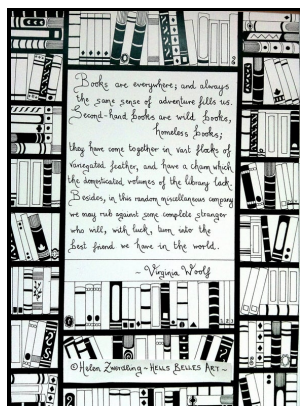 Books are everywhere; and always
the same sense of adventure fills us.
Second-hand books are wild books,
homeless books;
they have come together in vast flocks of
variegated feather, and have a charm which
the domesticated volumes of the library lack.
Besides, in this random miscellaneous company
we may rub against some complete stranger
who will, with luck, turn into the
best friend we have in the world.
~ Virginia Woolf
©Helen Zwerdling ~ HELLS BELLES ART ~